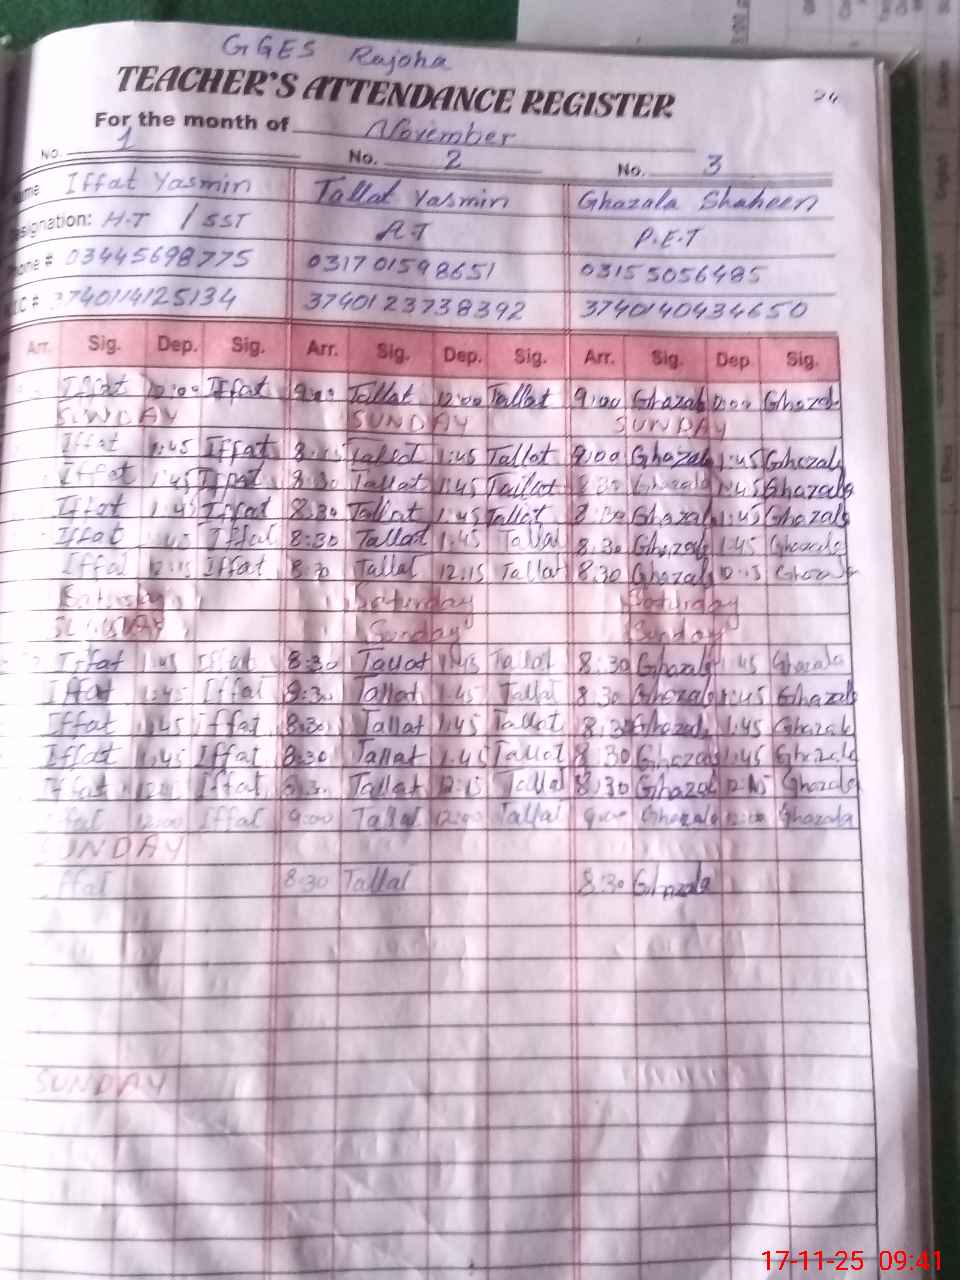 GGES Rajoha
TEACHER'S ATTENDANCE REGISTER
24
For the month of November
No. 1 No. 2 No. 3
Name Iffat Yasmin Tallat Yasmin Ghazala Shaheen
Designation: H.T / SST A.T P.E.T
Phone # 03445698775 031701598651 03155056485
3740114125134 3740123738392 3740140434650
Arr. Sig. Dep. Sig. Arr. Sig. Dep. Sig. Arr. Sig. Dep Sig.
Iffat 12:00 Iffat 9:00 Tallat 12:00 Tallat 9:00 Ghazala 12:00 Ghazala
SUNDAY SUNDAY SUNDAY
Iffat 1:45 Iffat Tallat 1:45 Tallat 9:00 Ghazala 1:45 Ghazala
Iffat 1:45 Iffat 8:30 Tallat 1:45 Tallat 8:30 Ghazala 1:45 Ghazala
Iffat 1:45 Iffat 8:30 Tallat 1:45 Tallat 8:30 Ghazala 1:45 Ghazala
Iffat Iffat 8:30 Tallat 1:45 Tallat 8:30 Ghazala 1:45 Ghazala
Iffat 12:15 Iffat 8:30 Tallat 12:15 Tallat 8:30 Ghazala 12:15 Ghazala
Saturday Saturday Saturday
SUNDAY Sunday Sunday
Iffat 1:45 Iffat 8:30 Tallat 1:45 Tallat 8:30 Ghazala 1:45 Ghazala
Iffat 1:45 Iffat 8:30 Tallat 1:45 Tallat 8:30 Ghazala 1:45 Ghazala
Iffat 1:45 Iffat 8:30 Tallat 1:45 Tallat 8:30 Ghazala 1:45 Ghazala
Iffat 1:45 Iffat 8:30 Tallat 1:45 Tallat 8:30 Ghazala 1:45 Ghazala
Iffat Iffat 8:30 Tallat 12:15 Tallat 8:30 Ghazala 12:15 Ghazala
Iffat 12:00 Iffat 9:00 Tallat 12:00 Tallat 9:00 Ghazala 12:00 Ghazala
SUNDAY
Iffat 8:30 Tallat 8:30 Ghazala
SUNDAY
17-11-25 09:41